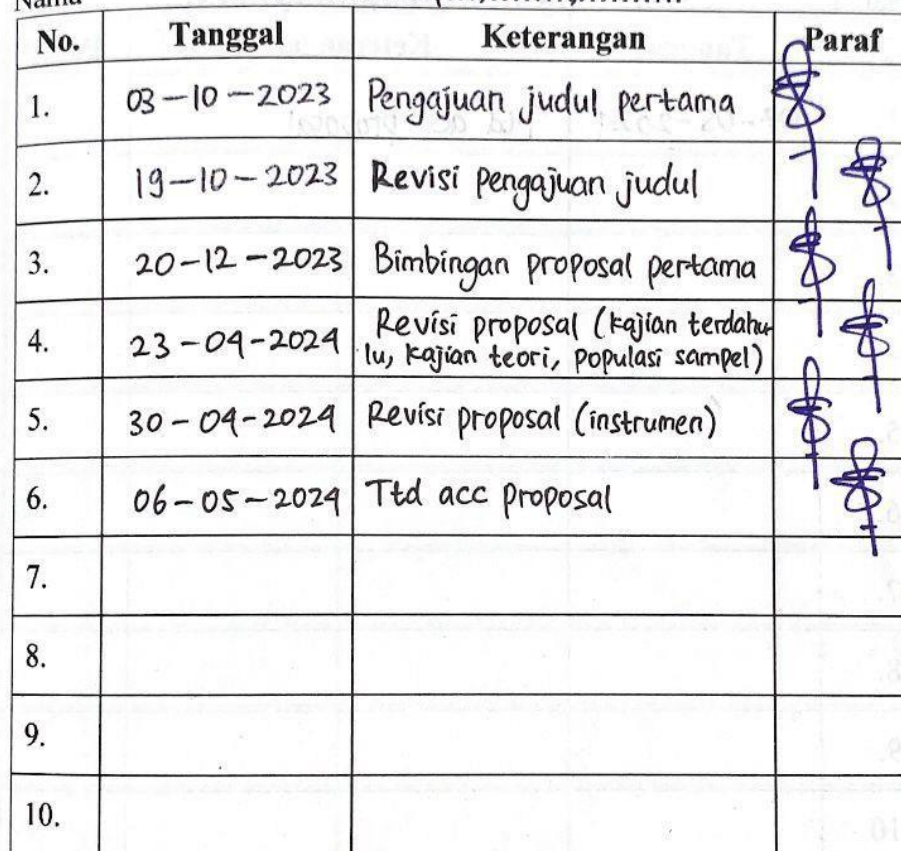 Nama
No. Tanggal Keterangan Paraf
1. 03-10-2023 Pengajuan judul pertama
2. 19-10-2023 Revisi pengajuan judul
3. 20-12-2023 Bimbingan proposal pertama
4. 23-04-2024 Revisi proposal (kajian terdahu-
lu, kajian teori, populasi sampel)
5. 30-04-2024 Revisi proposal (instrumen)
6. 06-05-2024 Ttd acc proposal
7.
8.
9.
10.